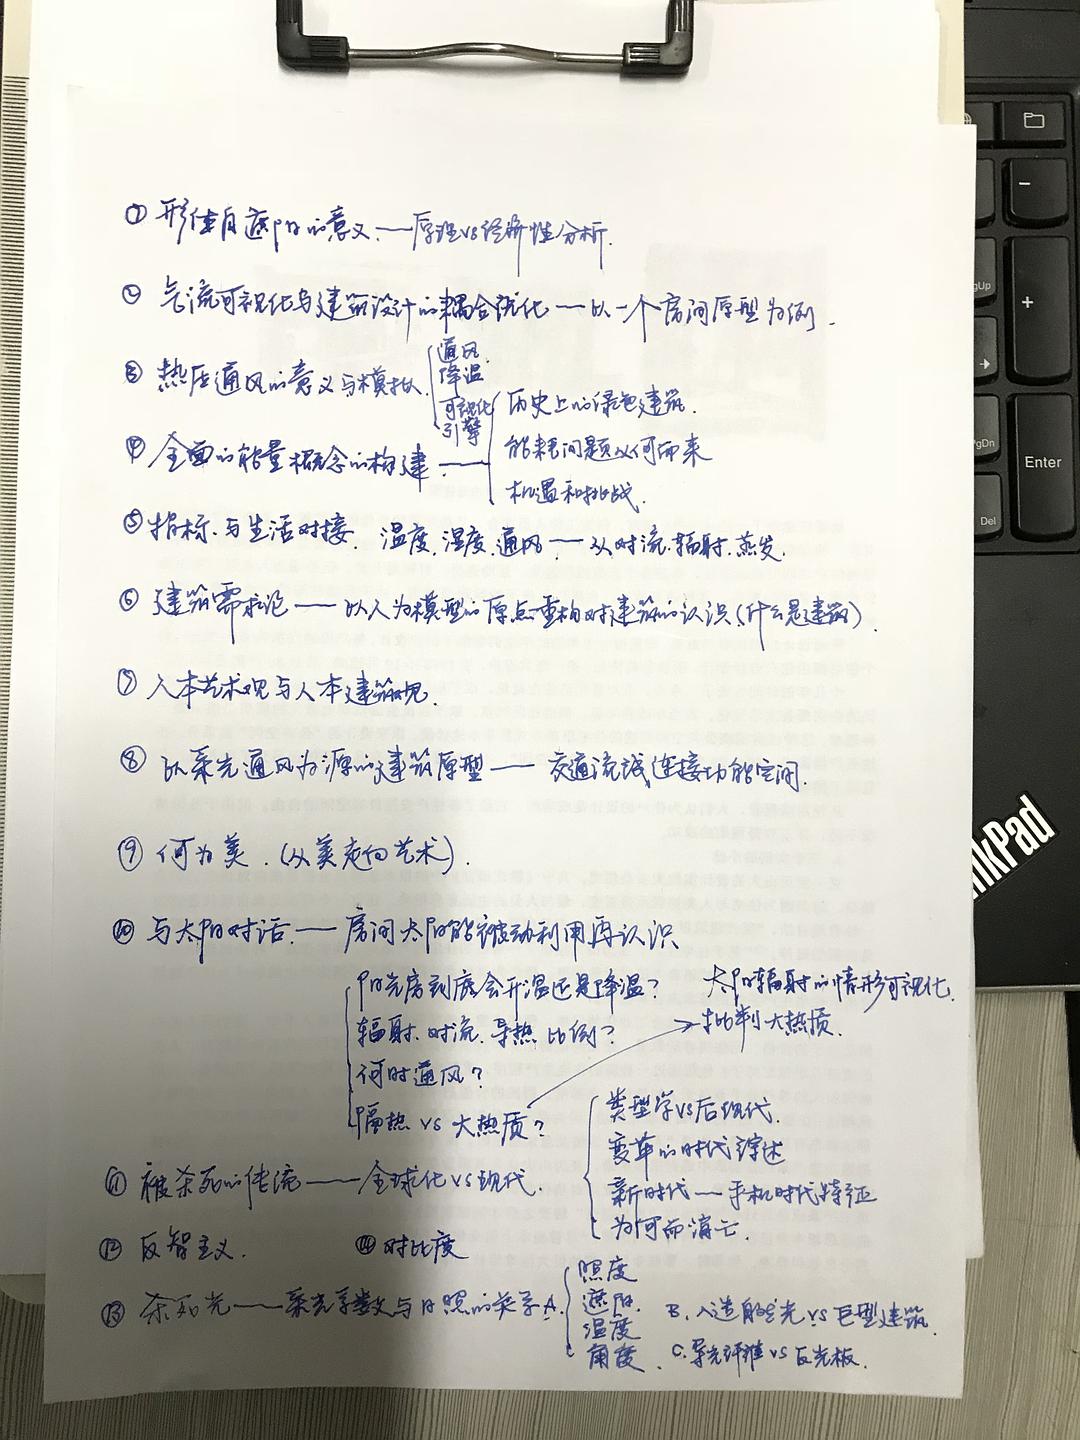 ① 形体自遮阳的意义.——原理vs经济性分析.
② 气流可视化与建筑设计的耦合优化——以一个房间原型为例.
③ 热压通风的意义与模拟.
通风.
降温
可视化
引擎
④ 全面的能量概念的构建.——
历史上的绿色建筑.
能耗问题从何而来
机遇和挑战.
⑤ 指标.与生活对接. 温度.湿度.通风——从对流.辐射.蒸发.
⑥ 建筑需求论——以人为模型的原点重构对建筑的认识(什么是建筑).
⑦ 人本艺术观与人本建筑观.
⑧ 以采光通风为源的建筑原型——交通流线连接功能空间.
⑨ 何为美.(从美走向艺术).
⑩ 与太阳对话.——房间太阳能被动利用再认识
阳光房到底会升温还是降温?
太阳辐射的情形可视化.
辐射.对流.导热 比例?
批判大热质.
何时通风?
隔热 vs 大热质?
⑪ 被杀死的传统——全球化vs现代.
类型学vs后现代.
变革的时代综述
新时代——手机时代特征
为何而消亡.
⑫ 反智主义.
⑭ 对比度
⑬ 杀死光——采光系数与日照的关系 A.
照度
遮阳.
温度
角度.
B. 人造的光vs巨型建筑.
C.导光纤维vs反光板.
PgUp
PgDn
Del
−
+
Enter
ThinkPad